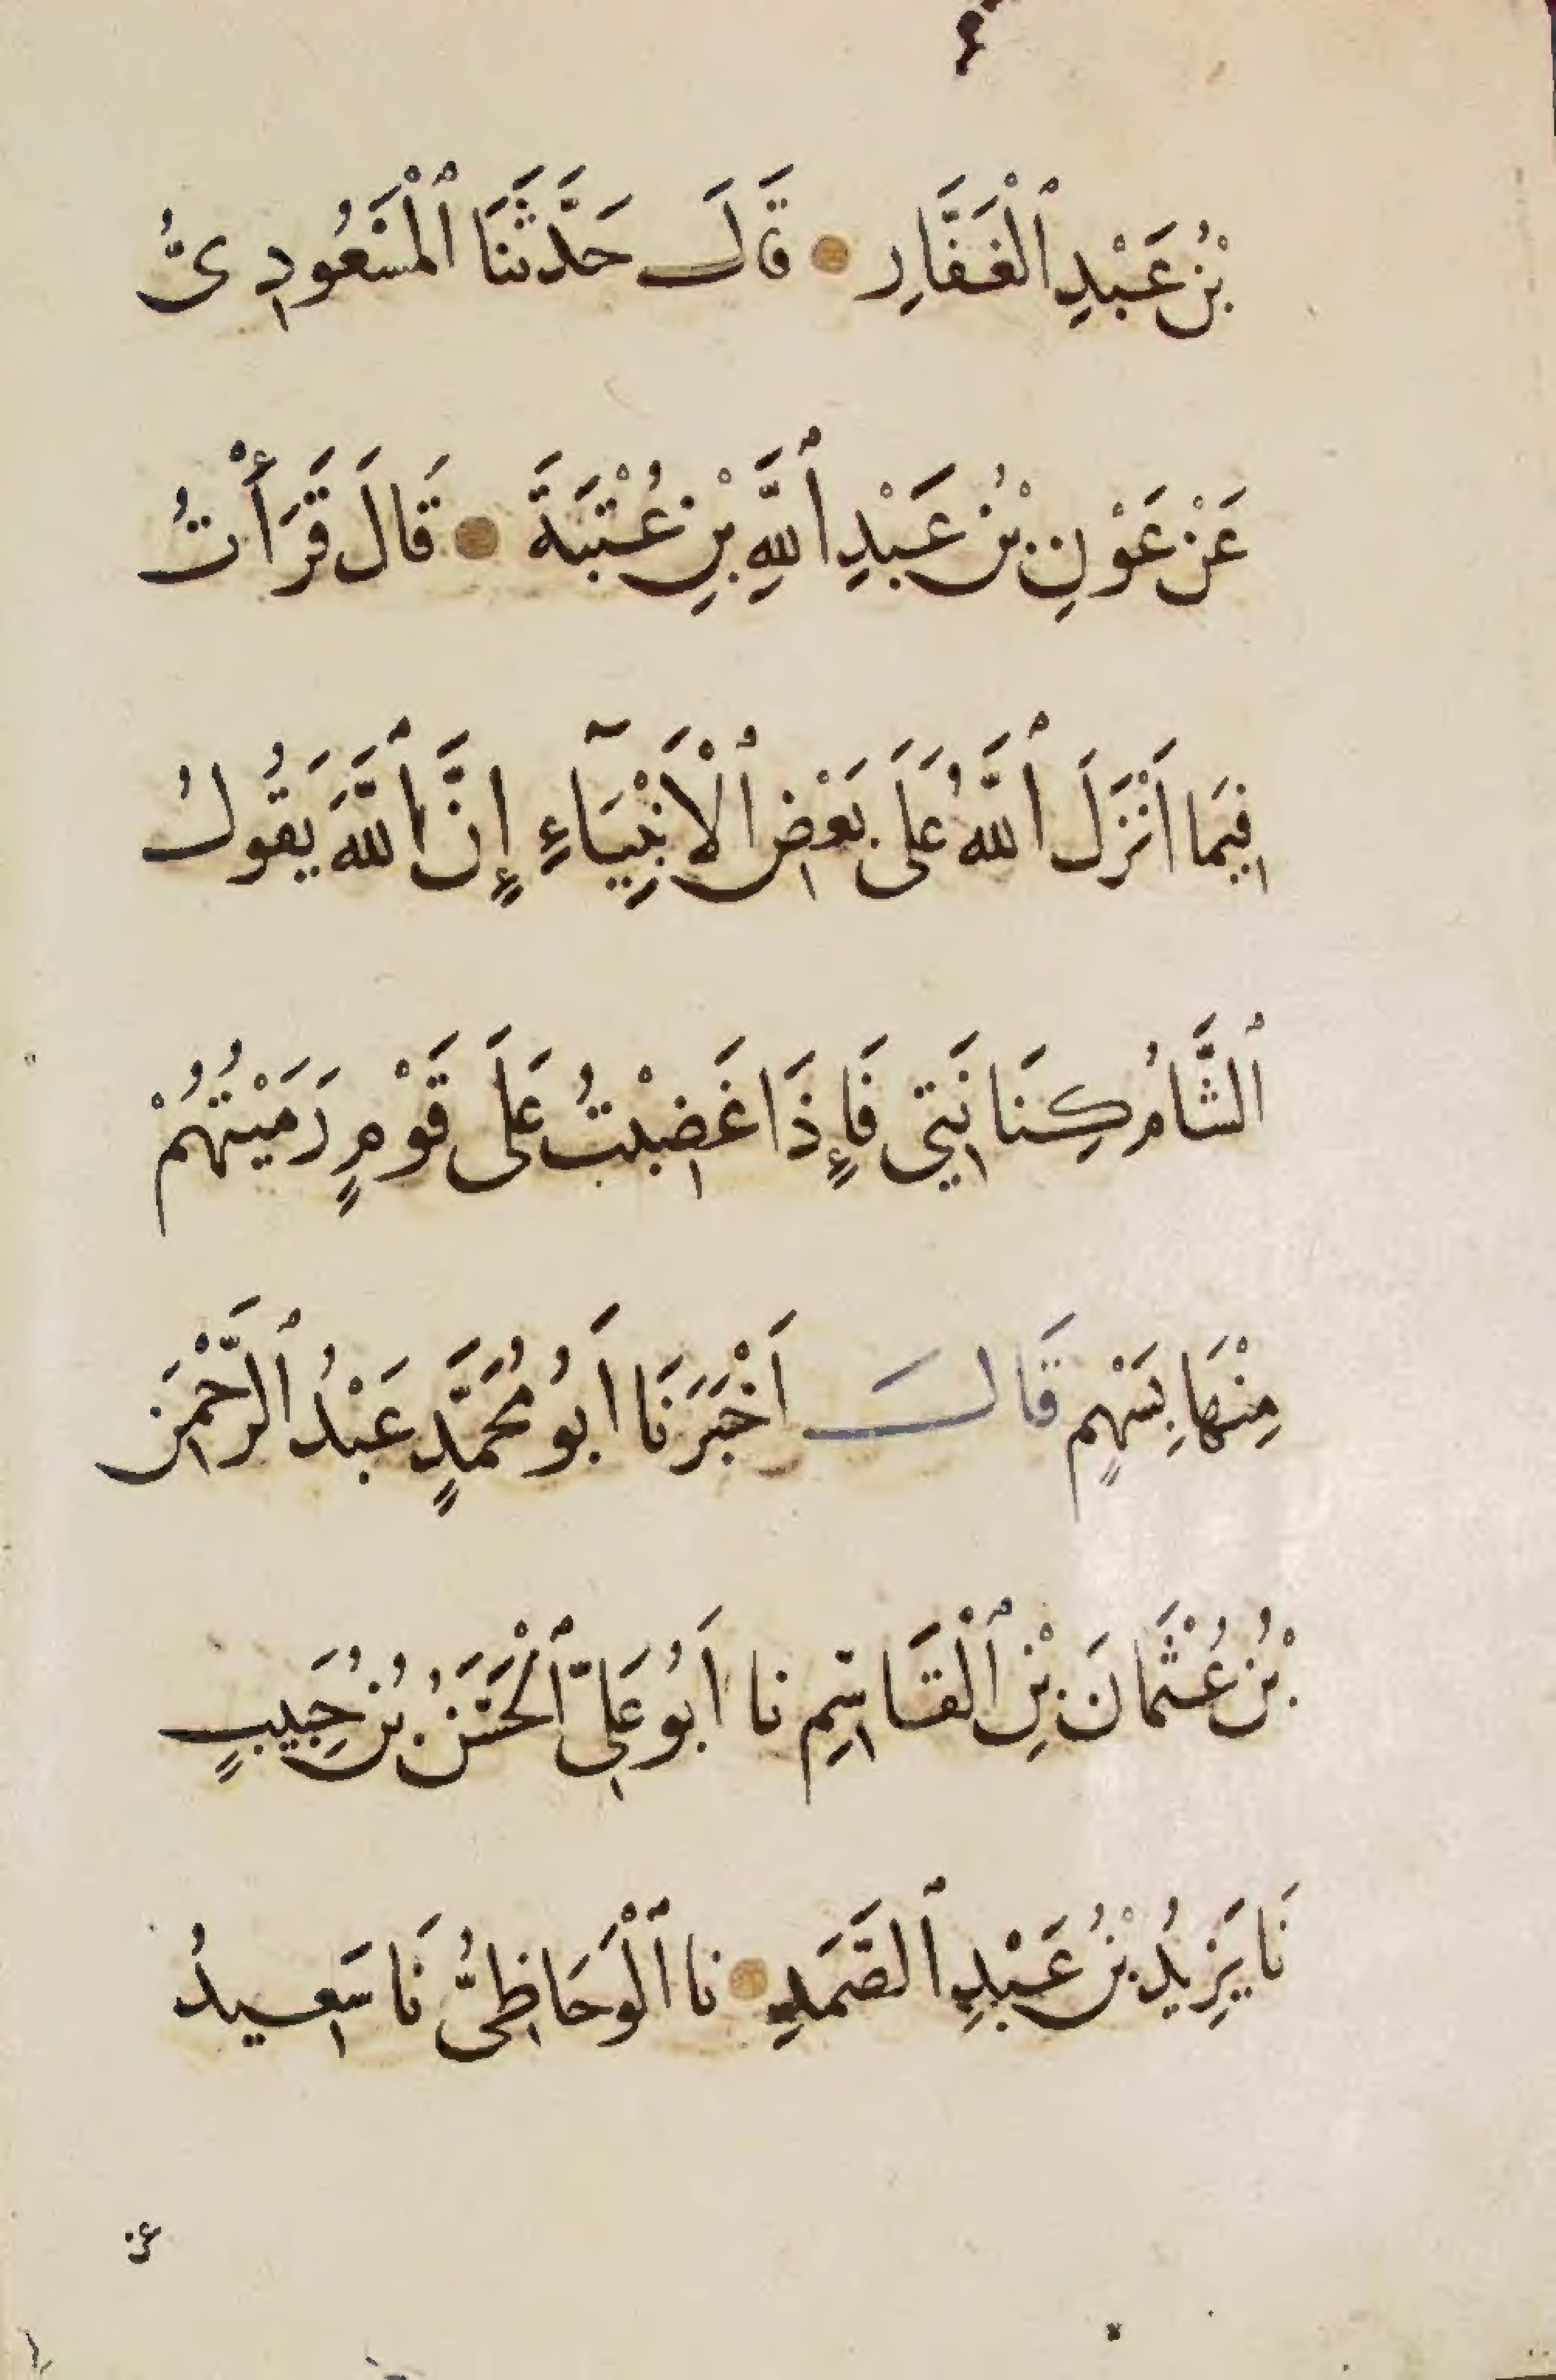 بْنُ عَبْدِ ٱلْغَفَّارِ قَالَ حَدَّثَنَا ٱلْمَسْعُودِىُّ
عَنْ عَوْنِ بْنُ عَبْدِ ٱللَّهِ بْنِ عُتْبَةَ قَالَ قَرَأْتُ
فِيَما اَنْزَلَ ٱللَّهُ عَلَى بَعْضِ ٱلْاَنْبِيَآءِ إِنَّ ٱللَّهَ يَقُولُ
ٱلشَّامُ كِنَانَتِي فَإِذَا غَضِبْتُ عَلَى قَوْمٍ رَمَيْتُهُمْ
مِنْهَا بِسَهْمٍ قَالَ اَخْبَرَنَا اَبُو مُحَمَّدٍ عَبْدُ ٱلرَّحْمٰنِ
بْنُ عُثْمَانَ بْنِ ٱلْقَاسِمِ نا اَبُو عَلِىّ ٱلْحَسَنُ بْنُ حَبِيبٍ
نَا يَزِيدُ بْنُ عَبْدِ ٱلصَّمَدِ نا ٱلْوَحَاظِىُّ نَا سَعِيدُ
عن